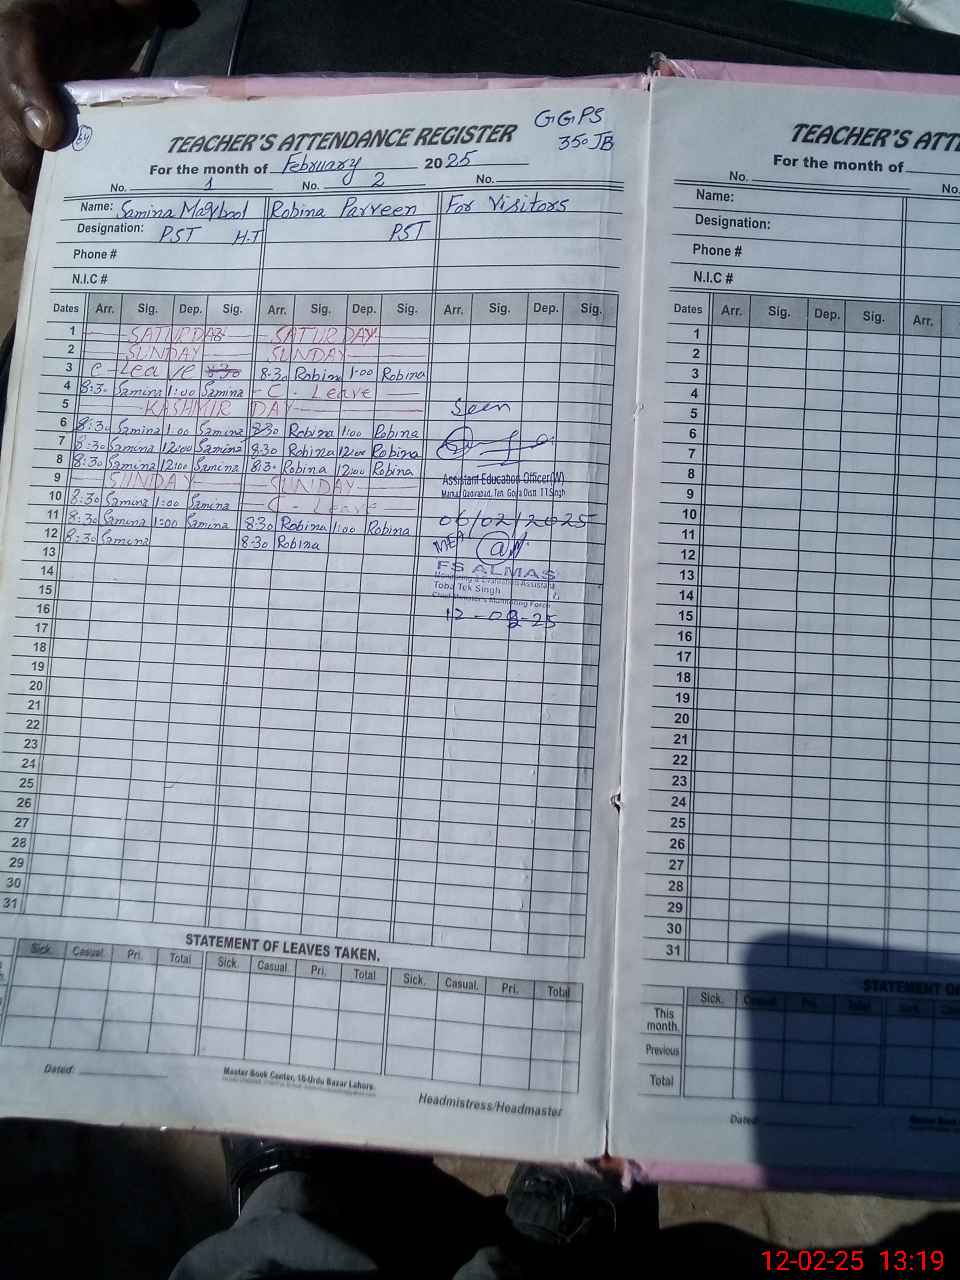 64
GGPS
350 JB
TEACHER'S ATTENDANCE REGISTER
For the month of February 2025
No. 1 No. 2 No.
Name: Samina Maqbool Robina Parveen For Visitors
Designation: PST H.T PST
Phone #
N.I.C #
Dates Arr. Sig. Dep. Sig. Arr. Sig. Dep. Sig. Arr. Sig. Dep. Sig.
1 SATURDAY SATURDAY
2 SUNDAY SUNDAY
3 C-Leave 8:30 8:30 Robina 1:00 Robina
4 8:30 Samina 1:00 Samina - C - Leave
5 KASHMIR DAY Seen
6 8:30 Samina 1:00 Samina 8:30 Robina 1:00 Robina
7 8:30 Samina 12:00 Samina 8:30 Robina 12:00 Robina
8 8:30 Samina 12:00 Samina 8:30 Robina 12:00 Robina
9 SUNDAY SUNDAY
Assistant Education Officer(W)
10 8:30 Samina 1:00 Samina C - Leave
11 8:30 Samina 1:00 Samina 8:30 Robina 1:00 Robina
06/02/2025
12 8:30 Samina 8:30 Robina
MEA
13
FS ALMAS
14
Monitoring & Evaluation Assistant
Toba Tek Singh
15
Chief Minister's Monitoring Force
12-02-25
16
17
18
19
20
21
22
23
24
25
26
27
28
29
30
31
STATEMENT OF LEAVES TAKEN.
Sick. Casual. Pri. Total Sick. Casual. Pri. Total Sick. Casual. Pri. Total
Dated:
Master Book Center, 16-Urdu Bazar Lahore.
Headmistress/Headmaster
TEACHER'S ATTE
For the month of
No. No.
Name:
Designation:
Phone #
N.I.C #
Dates Arr. Sig. Dep. Sig. Arr.
1
2
3
4
5
6
7
8
9
10
11
12
13
14
15
16
17
18
19
20
21
22
23
24
25
26
27
28
29
30
31
STATEMENT OF
Sick. Casual. Pri. Total
This month.
Previous
Total
Dated:
12-02-25 13:19